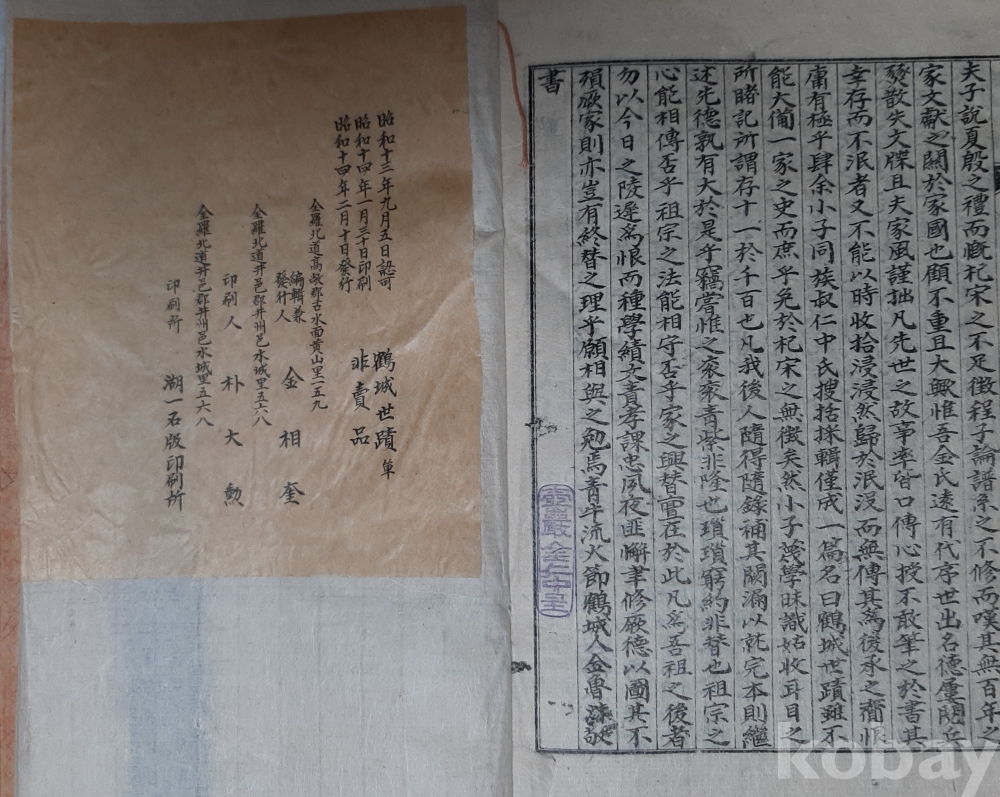 夫子說夏殷之禮而慨杞宋之不足徵程子論譜系之不修而嘆其無百年之
家文獻之關於家國也顧不重且大歟惟吾金氏遠有代序世出名德屢閱兵
燹散失文牒且夫家風謹拙凡先世之故事率皆口傳心授不敢筆之於書其
幸存而不泯者又不能以時收拾浸浸然歸於泯沒而無傳其爲後承之痛恨
庸有極乎肆余小子同族叔仁中氏搜括採輯僅成一篇名曰鶴城世蹟雖不
能大備一家之史而庶乎免於杞宋之無徵矣然小子蔑學昧識姑收耳目之
所睹記所謂存十一於千百也凡我後人隨得隨錄補其闕漏以就完本則繼
述先德孰有大於是乎竊嘗惟之袞袞靑紫非隆也瑣瑣窮約非替也祖宗之
心能相傳否乎祖宗之法能相守否乎家之興替亶在於此凡爲吾祖之後者
勿以今日之陵遲爲恨而種學績文責孝課忠夙夜匪懈聿修厥德以圖其不
殞厥家則亦豈有終替之理乎願相與之勉焉靑牛流火節鶴城人金魯洙敬
書
靈巖金仁中呈
昭和十三年九月五日認可
昭和十四年一月三十日印刷
昭和十四年二月十日發行
鶴城世蹟 單
非賣品
全羅北道高敞郡古水面黃山里一五九
編輯兼
發行人 金相奎
全羅北道井邑郡井州邑水城里五六八
印刷人 朴大勳
全羅北道井邑郡井州邑水城里五六八
印刷所 湖一石版印刷所
kobay